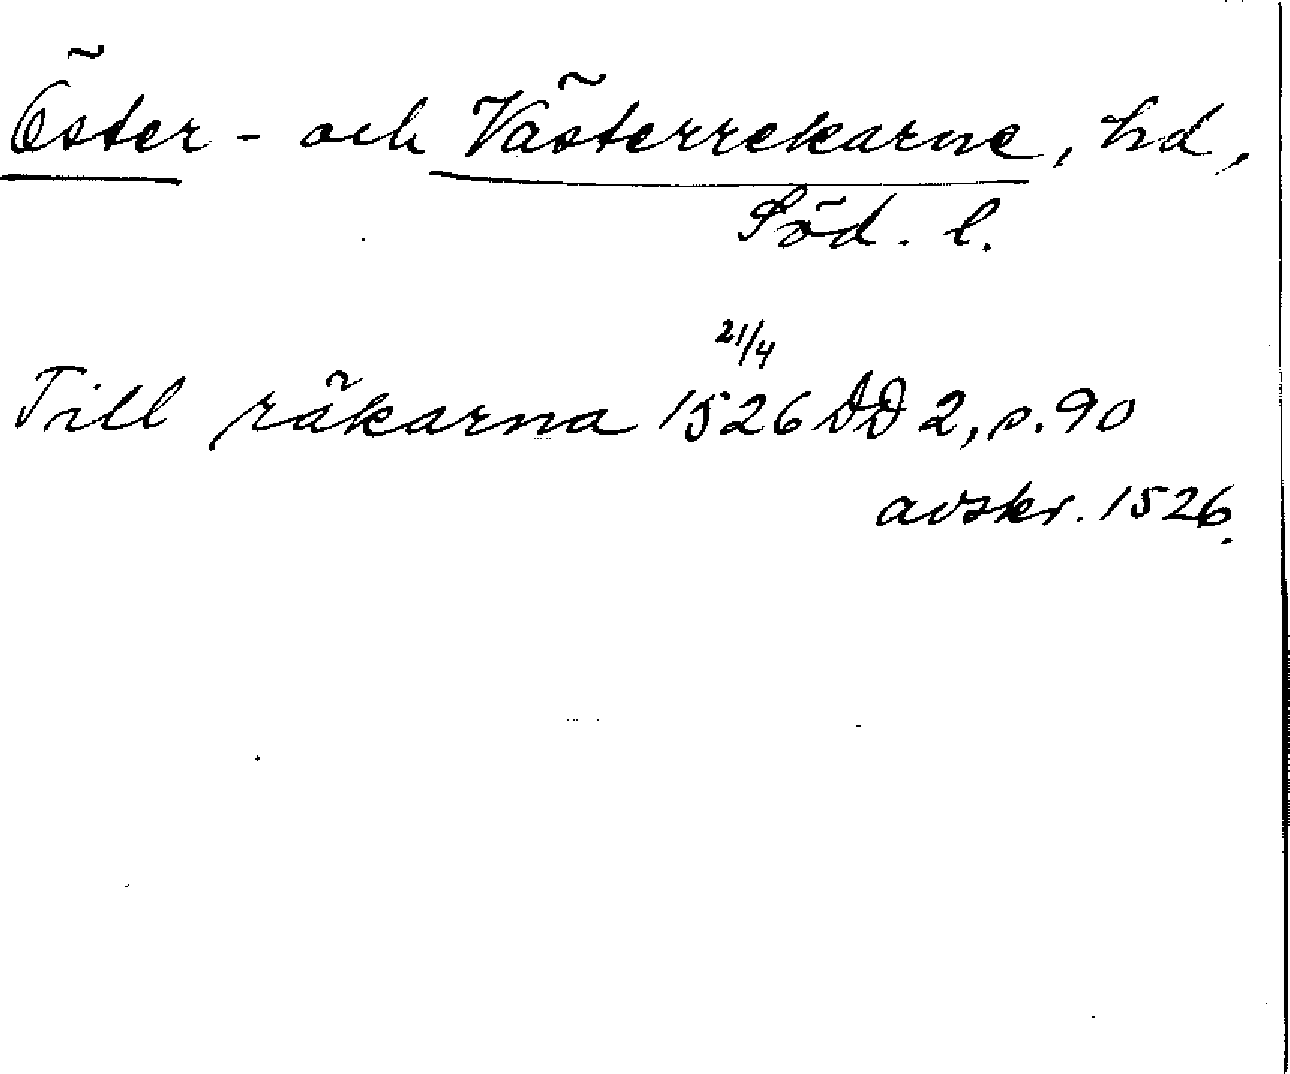 Öster- och Västerrekarne, hd,
Söd. l.
Till räkarna 21/4 1526 DD 2, s. 90
avskr. 1526.